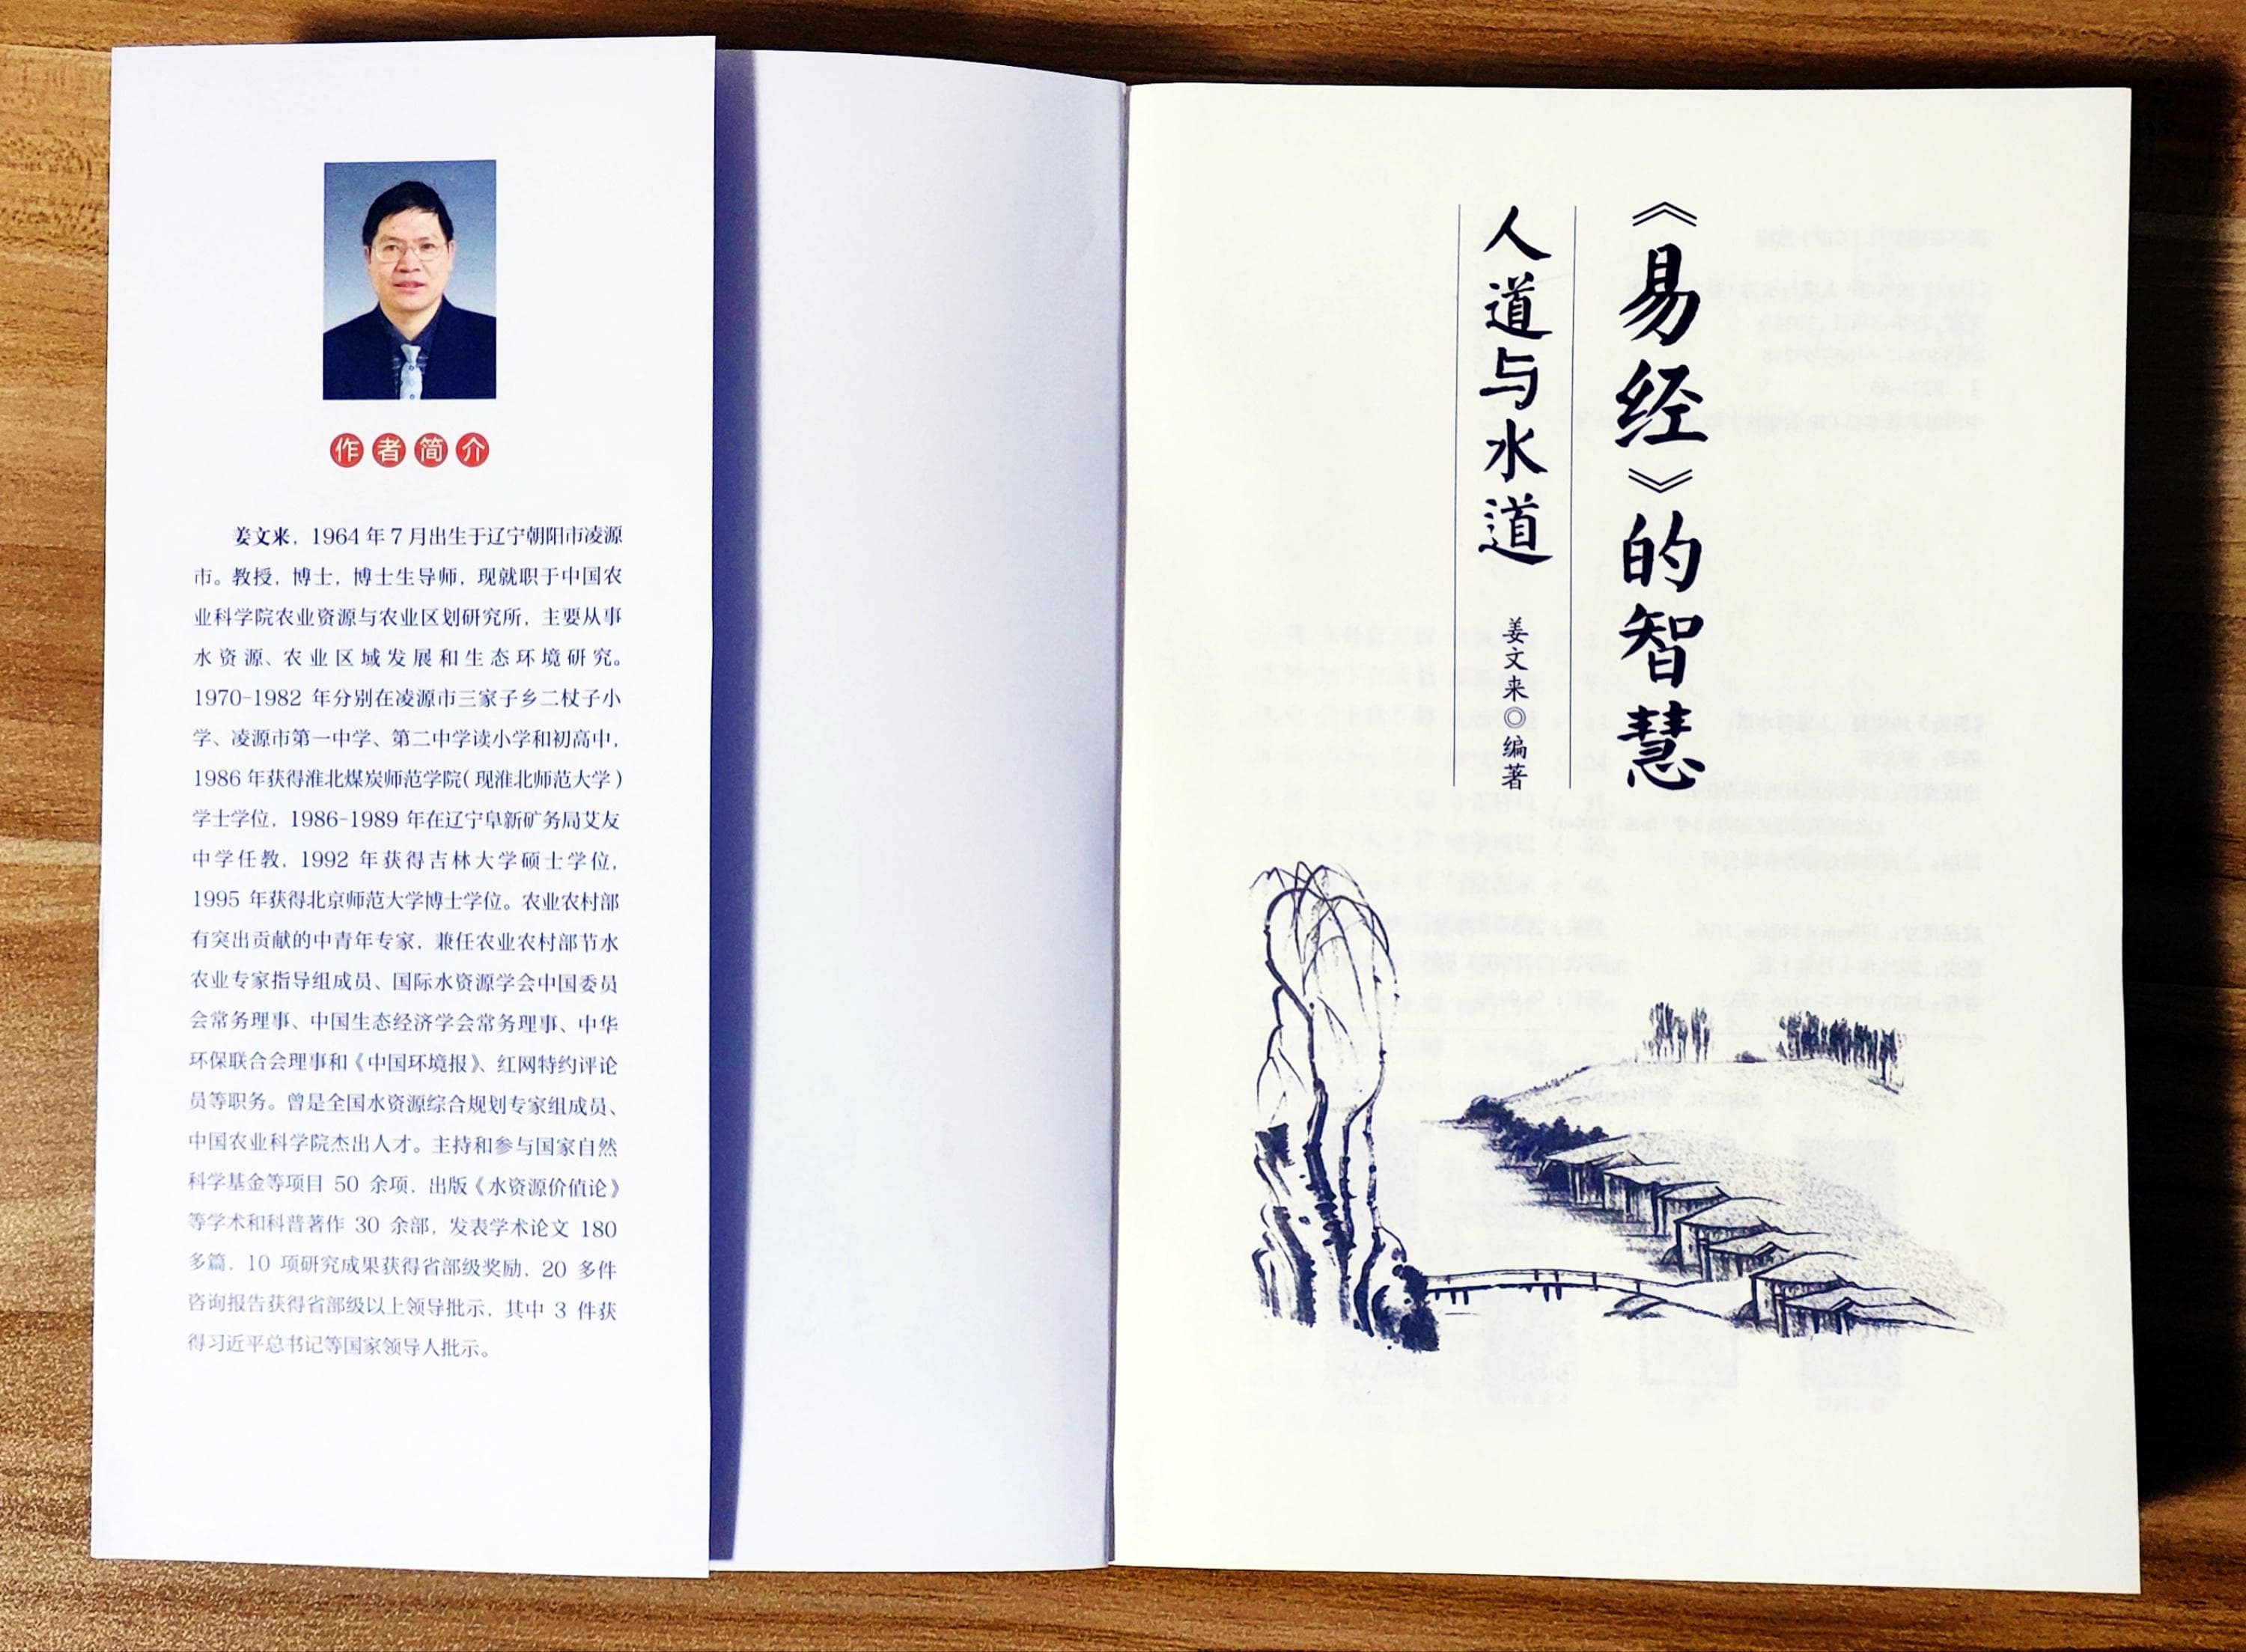 作者简介
姜文来，1964年7月出生于辽宁朝阳市凌源
市。教授，博士，博士生导师，现就职于中国农
业科学院农业资源与农业区划研究所，主要从事
水资源、农业区域发展和生态环境研究。
1970-1982 年分别在凌源市三家子乡二杖子小
学、凌源市第一中学、第二中学读小学和初高中，
1986年获得淮北煤炭师范学院(现淮北师范大学)
学士学位，1986-1989 年在辽宁阜新矿务局艾友
中学任教，1992 年获得吉林大学硕士学位，
1995 年获得北京师范大学博士学位。农业农村部
有突出贡献的中青年专家，兼任农业农村部节水
农业专家指导组成员、国际水资源学会中国委员
会常务理事、中国生态经济学会常务理事、中华
环保联合会理事和《中国环境报》、红网特约评论
员等职务。曾是全国水资源综合规划专家组成员、
中国农业科学院杰出人才。主持和参与国家自然
科学基金等项目 50 余项，出版《水资源价值论》
等学术和科普著作 30 余部，发表学术论文 180
多篇，10 项研究成果获得省部级奖励，20 多件
咨询报告获得省部级以上领导批示，其中 3 件获
得习近平总书记等国家领导人批示。
《易经》的智慧
人道与水道
姜文来◎编著